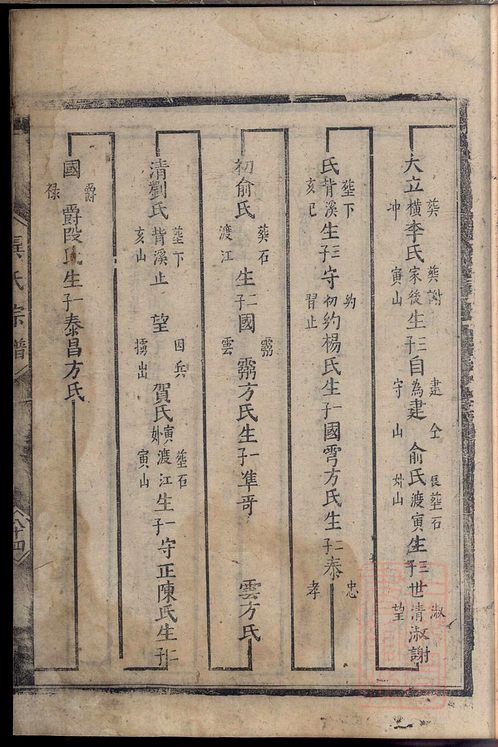 大立葬橫冲李氏葬謝家後寅山生三子自為建守仝山俞氏葬石渡寅山生三子世清淑望淑謝
氏葬下背溪亥巳生三子守初約習止約楊氏生一子國雩方氏生二子泰忠孝
初俞氏葬石渡江生二子國霧雲霧方氏生一子準哥雲方氏
清劉氏葬下背溪亥山止望因兵擄出賀氏葬石渡江寅山生一子守正陳氏生二子
國爵祿爵段氏生一子泰昌方氏
吳氏宗譜
八十四